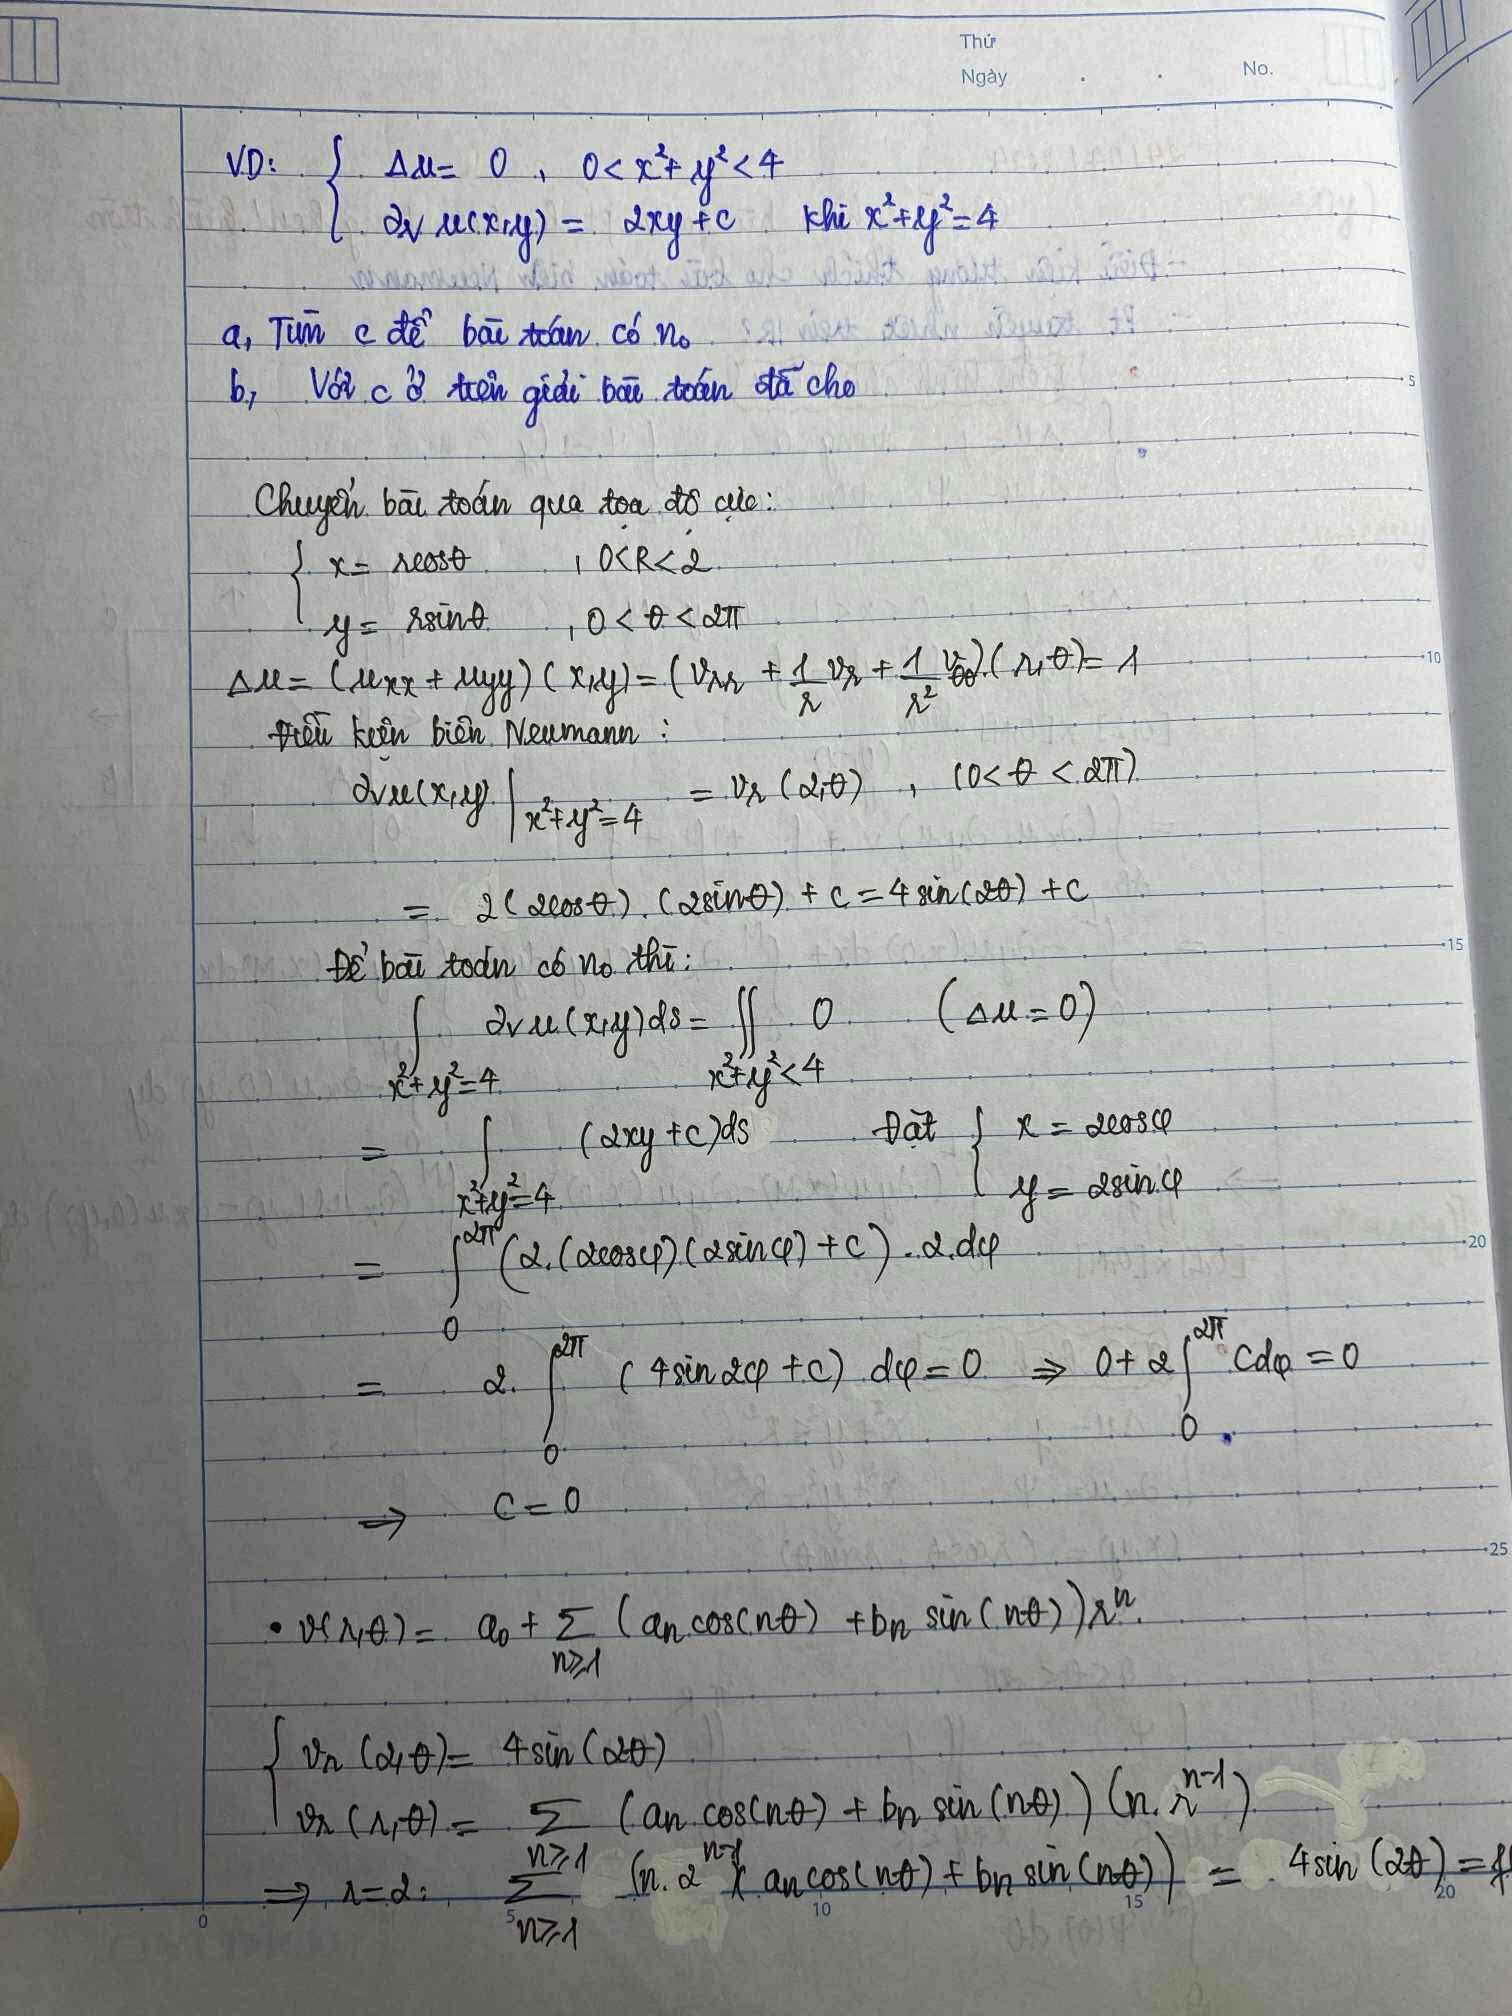 Thứ
Ngày . . No.
VD: { Δu = 0 , 0 < x² + y² < 4
∂ν u(x,y) = 2xy + c khi x² + y² = 4
a, Tìm c để bài toán có n₀
b, Với c ở trên giải bài toán đã cho
5
Chuyển bài toán qua tọa độ cực:
{ x = rcosθ , 0 < R < 2
y = rsinθ , 0 < θ < 2π
Δu = (uxx + uyy)(x,y) = (vrr + 1/r vr + 1/r² vθθ)(r,θ) = 1
10
Điều kiện biên Neumann :
∂νu(x,y) |x²+y²=4 = vr (2,θ) , (0 < θ < 2π)
= 2(2cosθ).(2sinθ) + c = 4sin(2θ) + c
Để bài toán có n₀ thì:
15
∫x²+y²=4 ∂νu(x,y)ds = ∬x²+y²<4 0 (Δu = 0)
= ∫x²+y²=4 (2xy + c)ds Đặt { x = 2cosφ
y = 2sinφ
= ∫₀^2π (2.(2cosφ)(2sinφ) + c) . 2.dφ
20
= 2. ∫₀^2π (4sin2φ + c) dφ = 0 ⇒ 0 + 2∫₀^2π Cdφ = 0
⇒ C = 0
25
• v(r,θ) = a₀ + Σn≥1 (an cos(nθ) + bn sin(nθ))rⁿ.
{ vr (2,θ) = 4sin(2θ)
vr (r,θ) = Σn≥1 (an cos(nθ) + bn sin(nθ)) (n.rⁿ⁻¹)
⇒ r=2: Σn≥1 (n.2ⁿ⁻¹ ( an cos(nθ) + bn sin(nθ)) = 4sin(2θ) =
0 5 10 15 20